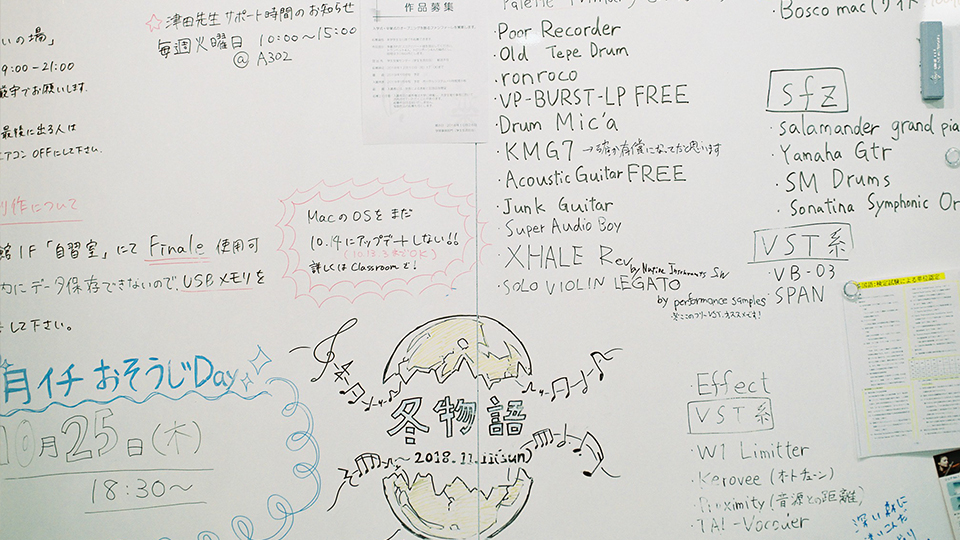 いの場」
9:00-21:00
厳守でお願いします.
最後に出る人は
エアコン OFFにして下さい.
☆津田先生サポート時間のお知らせ
毎週火曜日 10:00~15:00
@ A302
作品募集
制作について
館1F「自習室」にて Finale 使用可
内にデータ保存できないので、USBメモリを
して下さい。
MacのOSをまだ
10.14にアップデートしない!!
(10.13.3までOK)
詳しくはClassroomで!
月イチ おそうじDay
10月25日(木)
18:30~
冬物語
~2018.11.11(sun)
・Poor Recorder
・Old Tepe Drum
・ronroco
・VP-BURST-LP FREE
・Drum Mic'a
・KMG7 →確か有償になってたと思います
・Acoustic Guitar FREE
・Junk Guitar
・Super Audio Boy
・XHALE Rev by Native Instruments
・SOLO VIOLIN LEGATO
by performance samples
・Bosco mac
sfz
・salamander grand pia
・Yamaha Gtr
・SM Drums
・Sonatina Symphonic Or
VST系
・VB-03
・SPAN
・Effect
VST系
・W1 Limitter
・Kerovee (オトチューン)
・Proximity (音源との距離)
・TAL-Vocoder
深い森に